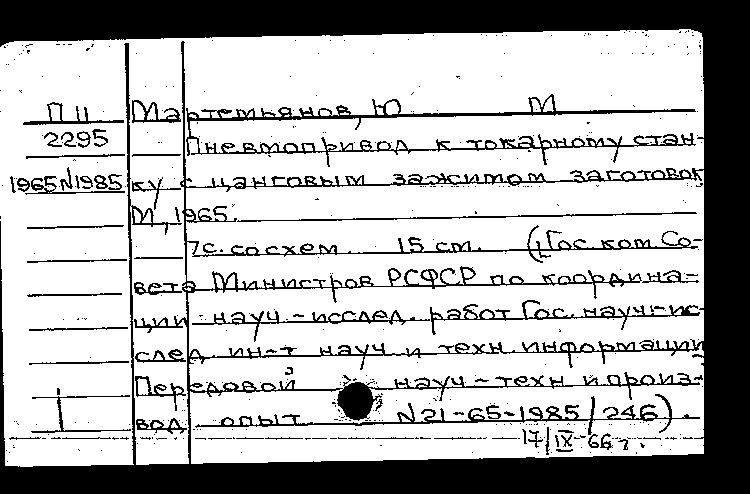 П II Мартемьянов, Ю М
2295 Пневмопривод к токарному стан-
1965 N1985 ку с цанговым зажимом заготовок
М, 1965.
7с. со схем. 15 см. (Гос. ком Со-
вета Министров РСФСР по координа-
ции науч-исслед. работ Гос. науч-ис-
след. ин-т науч и техн. информации
Передовой науч-техн и произ-
вод опыт N21-65-1985/246).
17/IX-66г.